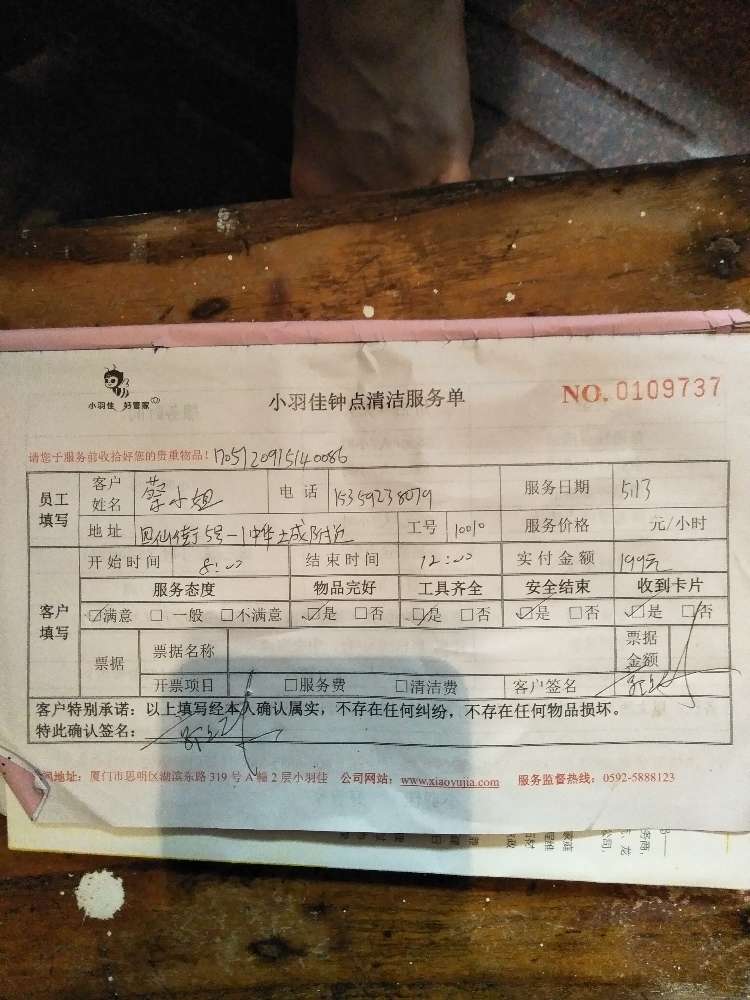 小羽佳 好管家
小羽佳钟点清洁服务单
NO. 0109737
请您于服务前收拾好您的贵重物品!
员工填写 客户姓名 蔡小姐 电话 15359238079 服务日期 5.13
地址 5号-1 附近 工号 10010 服务价格 元/小时
客户填写 开始时间 8:00 结束时间 12:00 实付金额 199元
服务态度 物品完好 工具齐全 安全结束 收到卡片
☑满意 □一般 □不满意 ☑是 □否 ☑是 □否 ☑是 □否 ☑是 □否
票据 票据名称 票据金额
开票项目 □服务费 □清洁费 客户签名
客户特别承诺：以上填写经本人确认属实，不存在任何纠纷，不存在任何物品损坏。
特此确认签名：
地址：厦门市思明区湖滨东路 319 号 A 幢 2 层小羽佳 公司网站：www.xiaoyujia.com 服务监督热线：0592-5888123